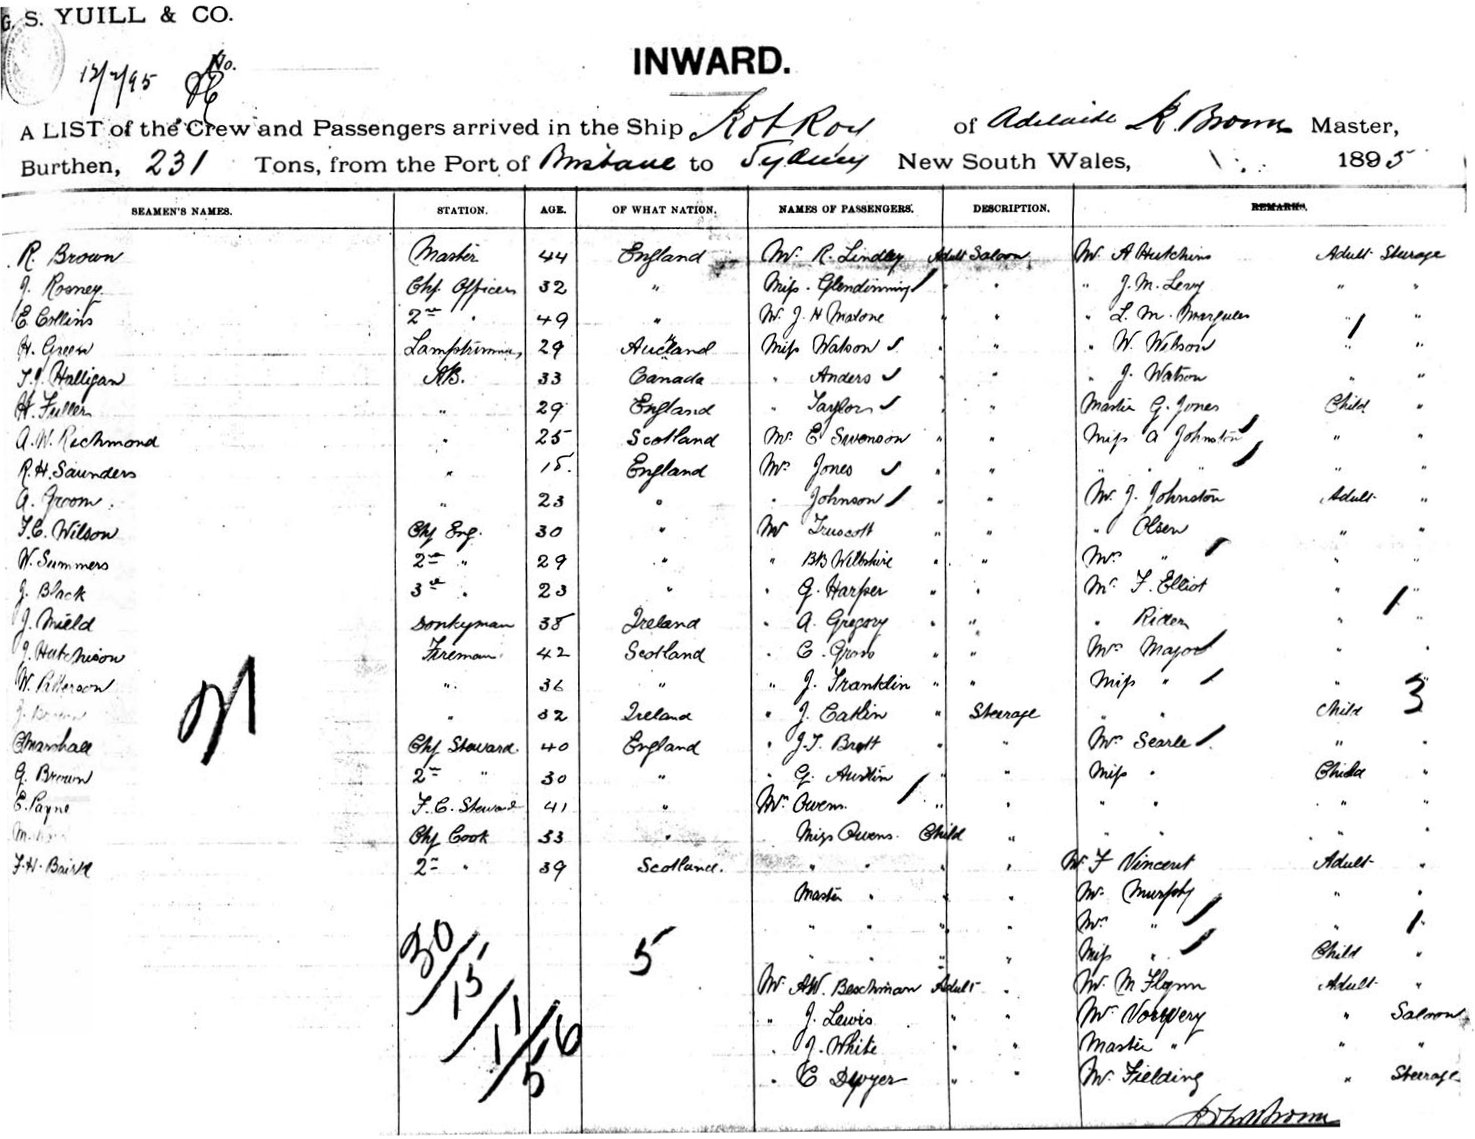 G. S. YUILL & CO.
12/2/95 No.
INWARD.
A LIST of the Crew and Passengers arrived in the Ship Rob Roy of Adelaide R. Brown Master,
Burthen, 231 Tons, from the Port of Brisbane to Sydney New South Wales, 1895
SEAMEN'S NAMES. STATION. AGE. OF WHAT NATION. NAMES OF PASSENGERS. DESCRIPTION. REMARKS.
R. Brown Master 44 England Mr. R. Lindley Adult Saloon Mr A Hutchins Adult Steerage
J. Rooney Chf. Officer 32 " Miss Glendinning " " " J. M. Levy " "
E. Collins 2nd " 49 " Mr J. H Malone " " L. M. Marques " "
H. Green Lamptrimmer 29 Miss Watson " " " W. Wilson " "
T. J. Halligan AB. 33 Canada " Anders " " " J. Watson " "
H. Fuller " 29 England " Taylor " " Master G. Jones Child "
A. W. Richmond " 25 Scotland Mr. E Swenson " " Miss A Johnston " "
R. H. Saunders " England Mrs Jones " " " " " " "
A. Groom " 23 " " Johnson " " Mr. J. Johnston Adult "
F. E. Wilson Chf Eng. 30 " Mr Truscott " " " Olsen " "
W. Summers 2nd " 29 " " BB Wiltshire " " Mrs " " "
J. Black 3rd " 23 " " G. Harper " " Mr F. Elliot " "
J. Mield Donkyman 38 Ireland " A. Gregory " " " Rider " "
J. Hutchison Fireman 42 Scotland " C. " " Mrs Major " "
W. Patterson " 36 " " J. Franklin " " Miss " " 3
" 32 Ireland " J. Catlin " Steerage " " Child "
C Marshall Chf Steward. 40 England " J. T. Brett " " Mrs Searle " "
G. Brown 2nd " 30 " " G. Austin " " Miss " Child "
E. Payne F. C. Steward 41 " Mrs Owens " " " " " "
Chf Cook 33 " Miss Owens. Child " " " " "
F. H. Baird 2nd " 39 Scotland. " " " " Mr F Vincent Adult "
Master " " " Mr. Murphy " "
" " " " Mrs " " "
" " " " Miss " Child "
Mr A W. Beschman Adult " Mr. M Flynn Adult "
" J. Lewis " " Mr Saloon
" J. White " " Master " " "
" C Dwyer " " Mr. Fielding " Steerage
21
30/15/11/56
5